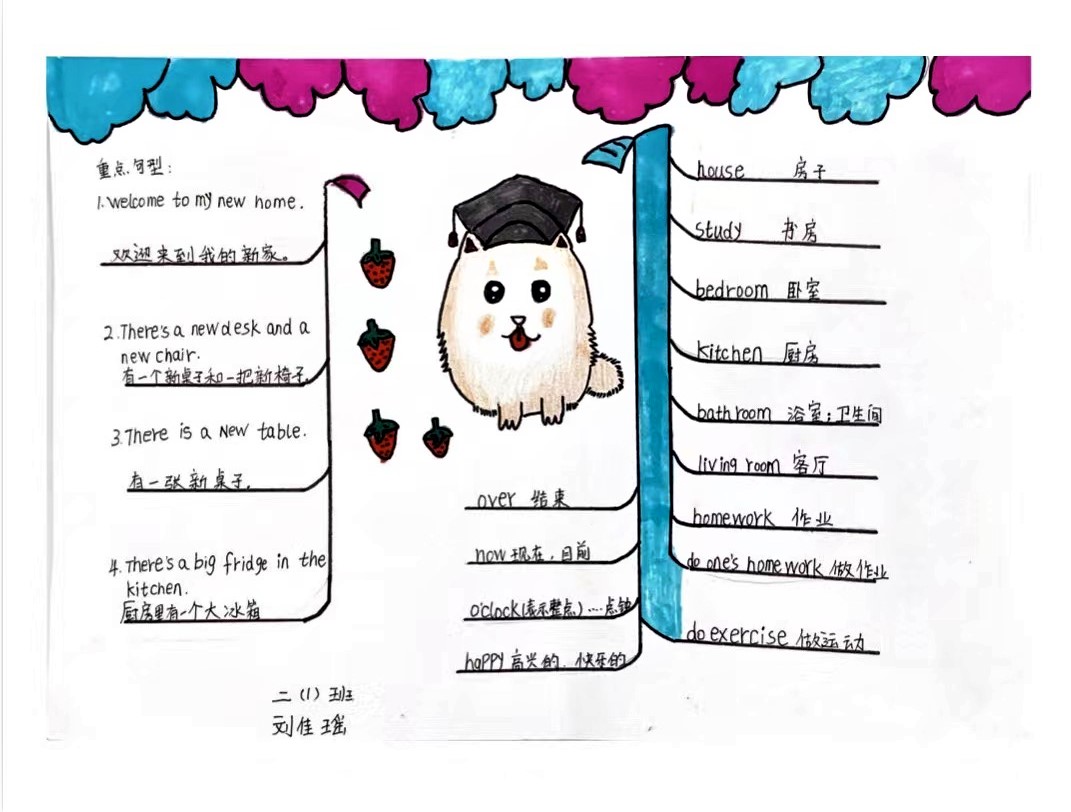 重点句型:
1. Welcome to my new home.
欢迎来到我的新家。
2. There's a new desk and a
new chair.
有一个新桌子和一把新椅子.
3. There is a New table.
有一张新桌子.
4. There's a big fridge in the
kitchen.
厨房里有一个大冰箱
over 结束
now 现在,目前
o'clock(表示整点)…点钟
happy 高兴的,快乐的
house 房子
study 书房
bedroom 卧室
kitchen 厨房
bathroom 浴室;卫生间
living room 客厅
homework 作业
do one's homework 做作业
do exercise 做运动
二(1)班
刘佳瑶